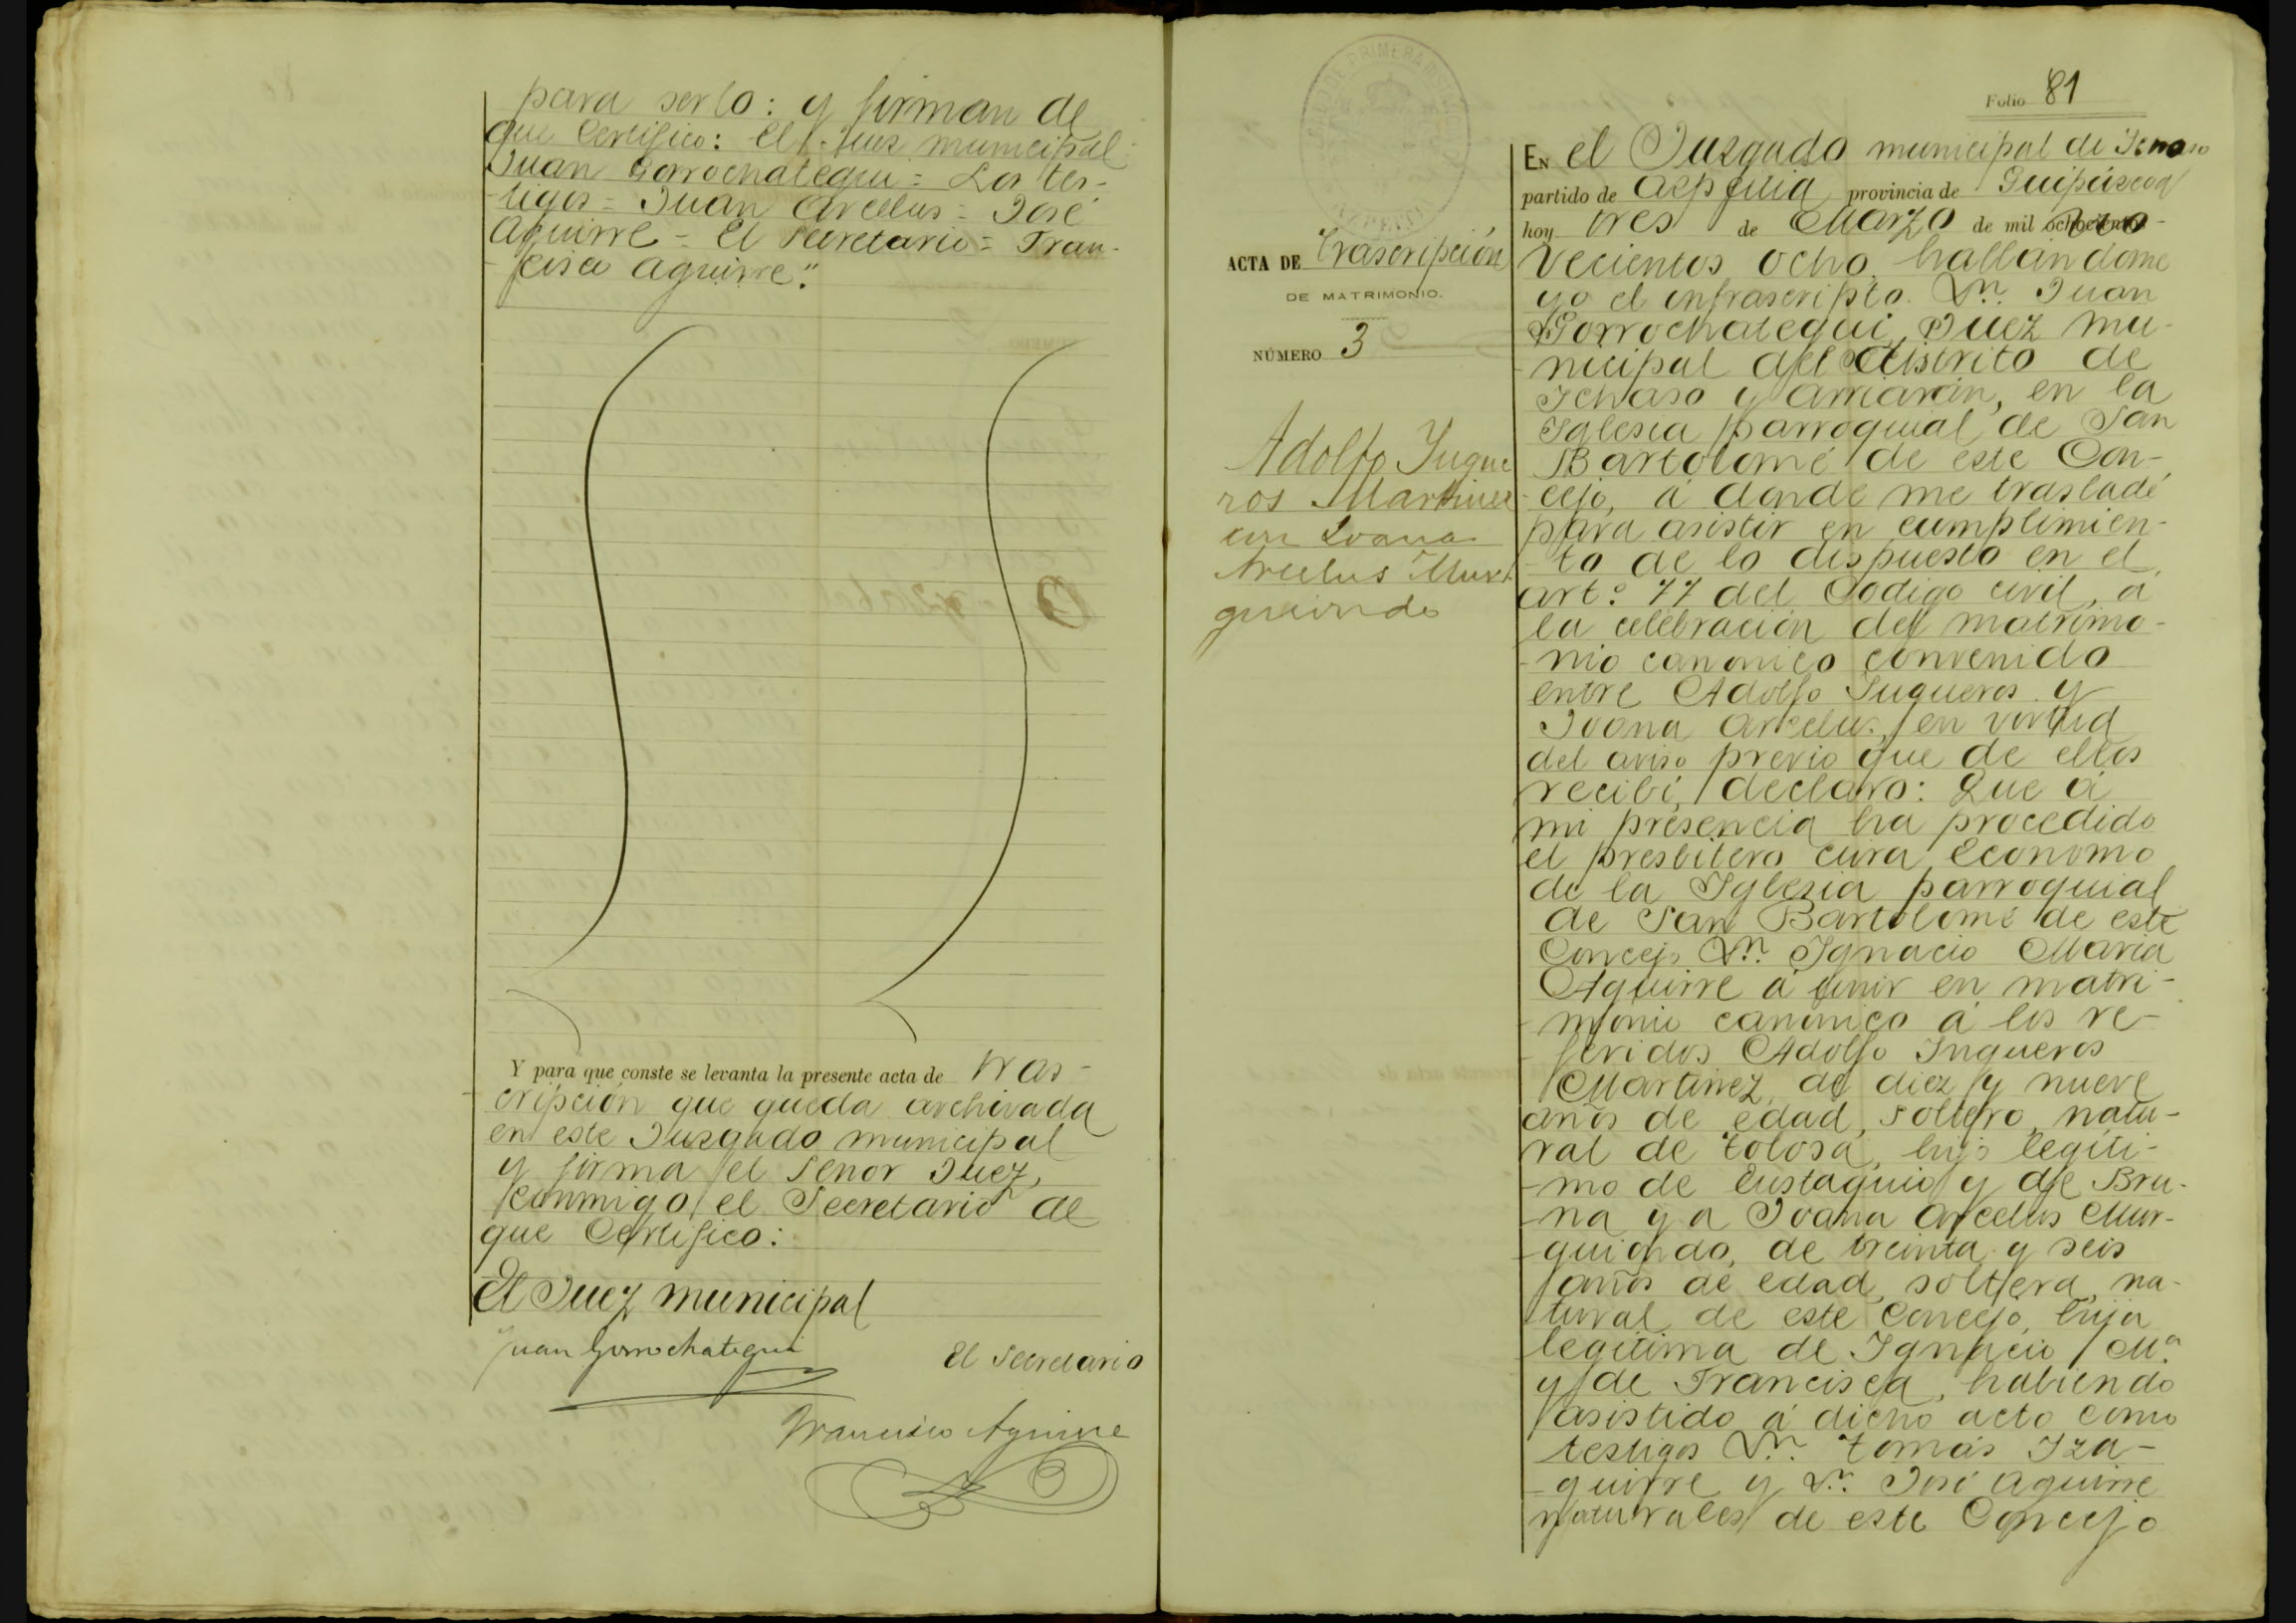 para serlo: y firman de
que Certifico: El Juez municipal
Juan Gorrochategui = Los tes-
-tigos = Juan Arcelus = José
Aguirre = El Secretario = Fran-
-cisco Aguirre".
Y para que conste se levanta la presente acta de tras-
cripción que queda archivada
en este Juzgado municipal
y firma el Señor Juez,
conmigo el Secretario de
que Certifico:
El Juez municipal
Juan Gorrochategui
El Secretario
Francisco Aguirre
Folio 81
ACTA DE trascripción
DE MATRIMONIO.
NÚMERO 3
Adolfo Jugue
ros Martinez
con Ivana
Arcelus Mur
guiondo
EN el Juzgado municipal de Ichaso
partido de Azpeitia provincia de Guipúzcoa
hoy tres de Marzo de mil no-
vecientos ocho hallándome
yo el infrascripto Dn. Juan
Gorrochategui, Juez mu-
nicipal del distrito de
Ichaso y Arriarán, en la
Iglesia parroquial de San
Bartolomé de este Con-
cejo, á donde me trasladé
para asistir en cumplimien-
to de lo dispuesto en el
art.º 77 del Codigo civil, á
la celebración del matrimo-
-nio canonico convenido
entre Adolfo Jugueros y
Ivana Arcelus, en virtud
del aviso previo que de ellos
recibí, declaro: Que á
mi presencia ha procedido
el presbitero cura Economo
de la Iglesia parroquial
de San Bartolomé de este
Concejo Dn. Ignacio Maria
Aguirre á unir en matri-
-monio canónico á los re-
-feridos Adolfo Jugueros
Martinez, de diez y nueve
años de edad, soltero, natu-
ral de Tolosa, hijo legiti-
-mo de Eustaquio y de Bru-
-na y a Ivana Arcelus Mur-
-guiondo, de treinta y seis
años de edad, soltera, na-
tural de este Concejo, hija
legitima de Ignacio Mª
y de Francisca, habiendo
asistido á dicho acto como
testigos Dn. Tomás Iza-
-guirre y Dn. José Aguirre
naturales de este Concejo